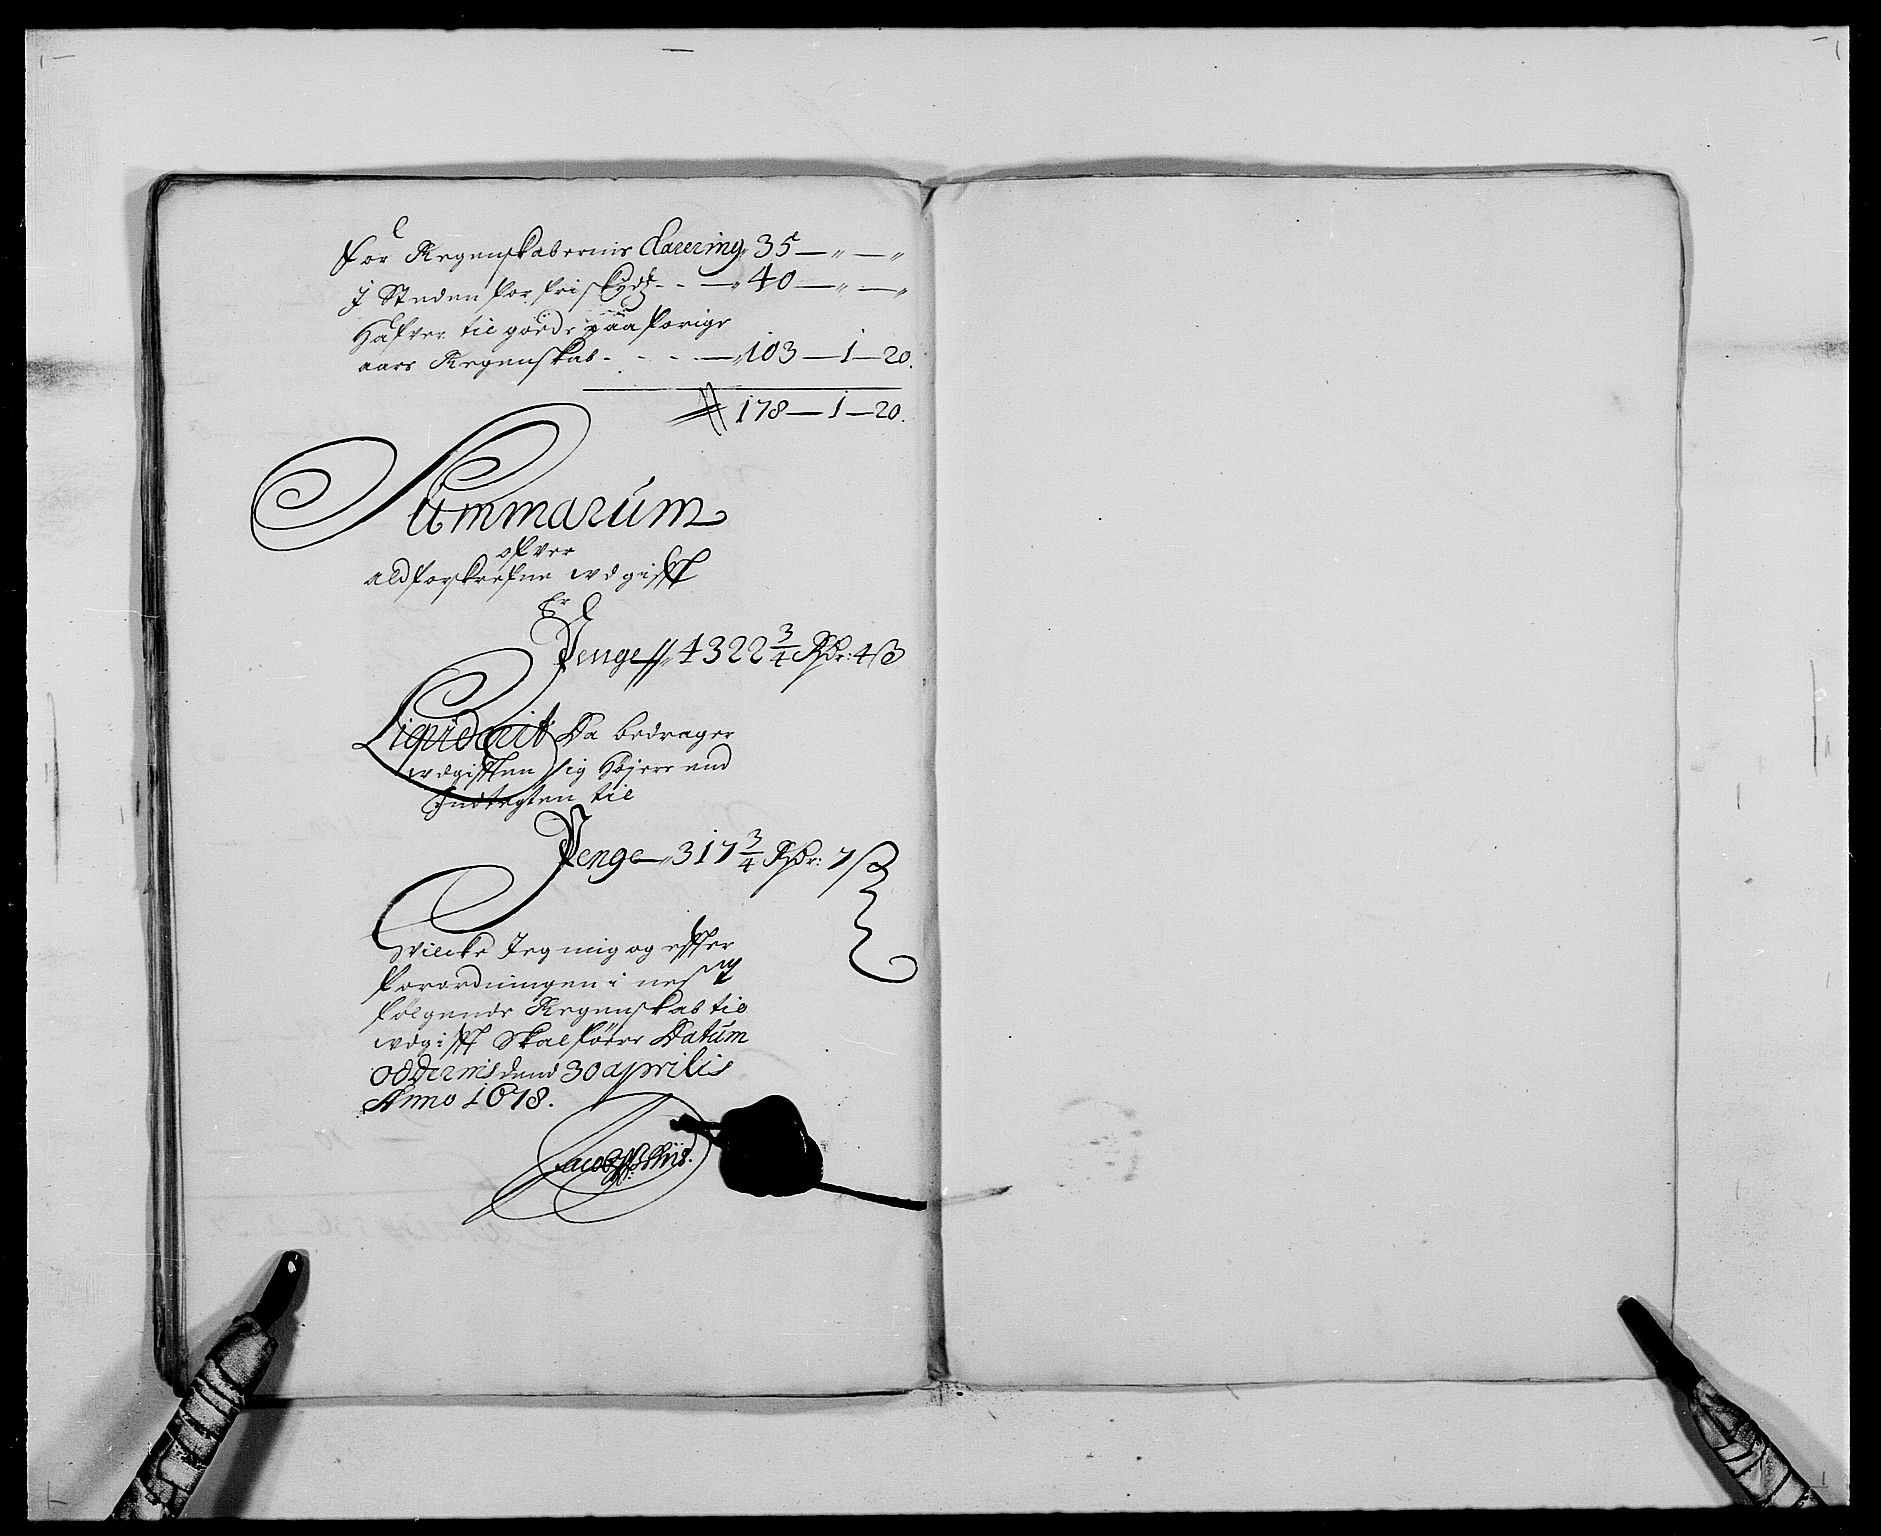 for Regenskabernis Clarering „ 35 — „ — „
J Steden for friskydz - - — „ 40 — „ — „
Hafver til gode paa forige
aars Regenskab - - - - — „ 103 — 1 — 20.
178 — 1 — 20.
Summarum
ofver
ald forskrefne wdgifft
Er
Penge „ 4322 3/4 Rdr: 4 ß
Liqviderit Da bedrager
wdgifften sig højere end
Indtegten til
Penge — „ 317 3/4 Rdr: 7 ß
Wilcke Jeg mig og effter
forordningen i nest
følgende Regenskab til
wdgifft skal føere Datum
Oddernis dend 30 aprilis
Anno 1678.
Jacob